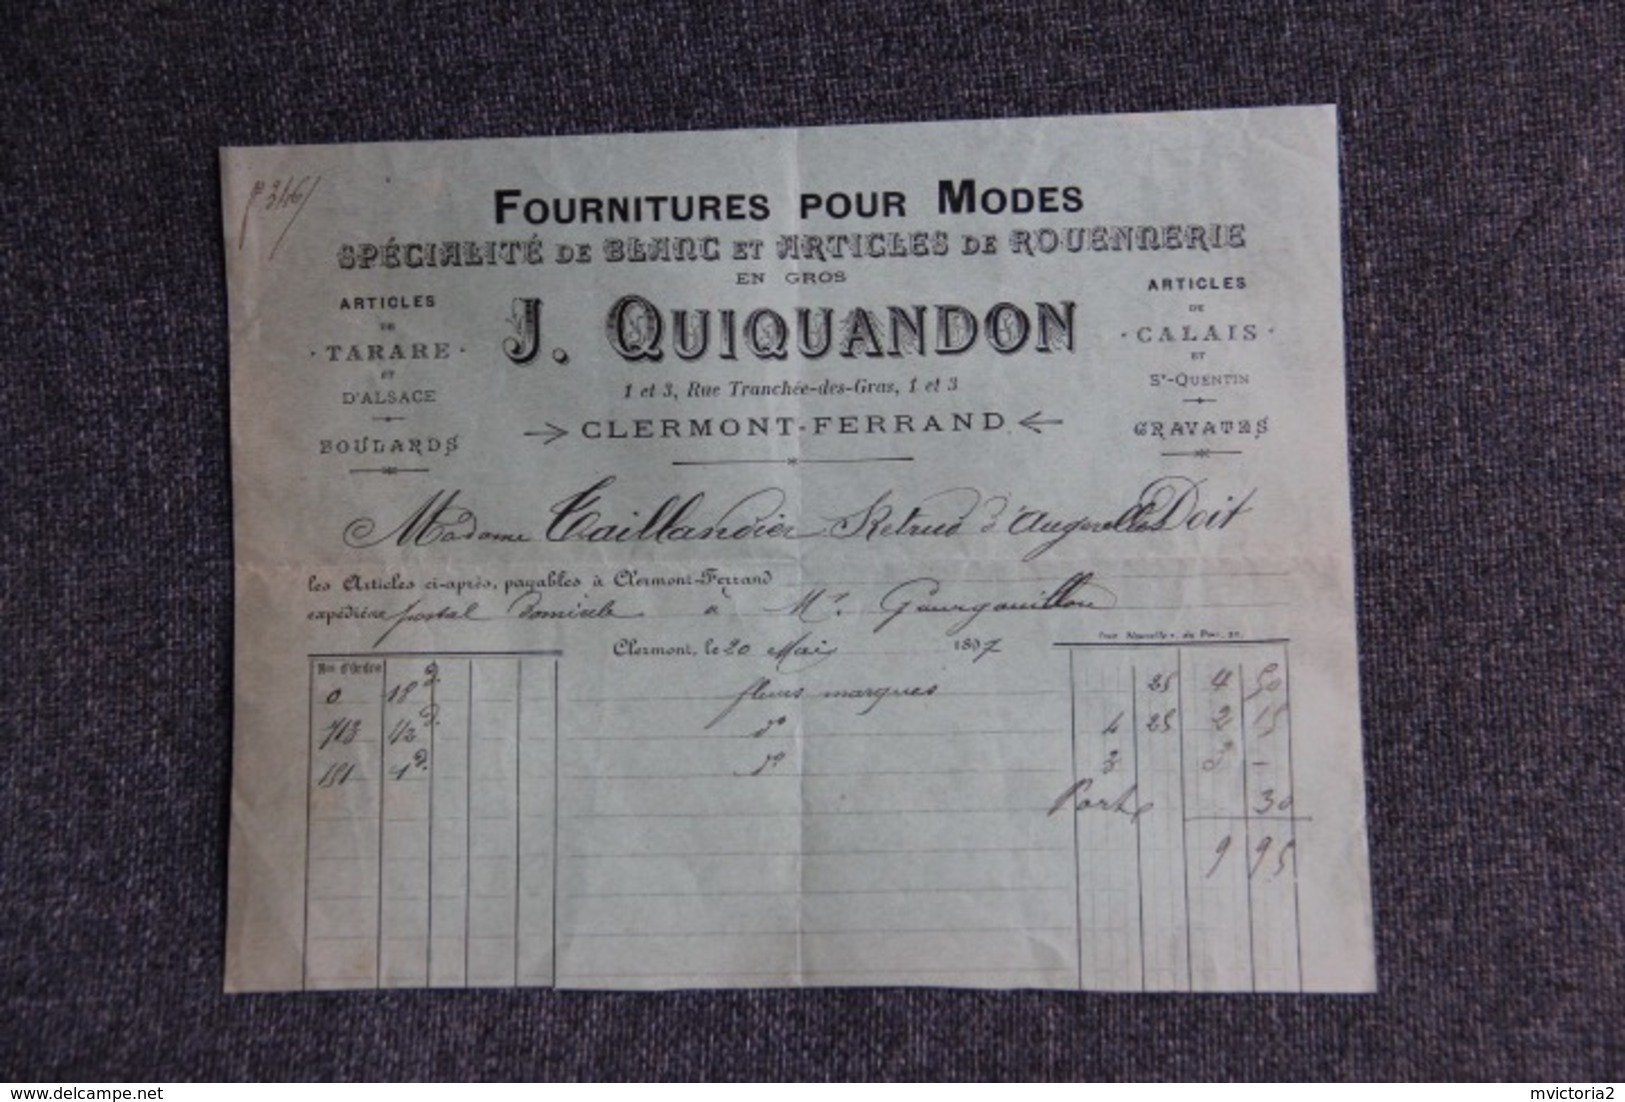 FOURNITURES POUR MODES
SPÉCIALITÉ DE BLANC ET ARTICLES DE ROUENNERIE
EN GROS
J. QUIQUANDON
1 et 3, Rue Tranchée-des-Gras, 1 et 3
CLERMONT-FERRAND
ARTICLES
DE
· TARARE ·
ET
D'ALSACE
FOULARDS
ARTICLES
DE
· CALAIS ·
ET
St-QUENTIN
CRAVATES
Madame Taillandier d'Augerolles Doit
les Articles ci-après, payables à Clermont-Ferrand
expédiés postal domicile à Mr. Gourgouillon
Clermont, le 20 Mai 1897
Nos d'Ordre
0 18 d. fleurs marques 25 4 50
713 1/2 d. do 4 25 2 15
191 1 d. do 3 3 -
Port 30
9 95
delcampe.net
mvictoria2